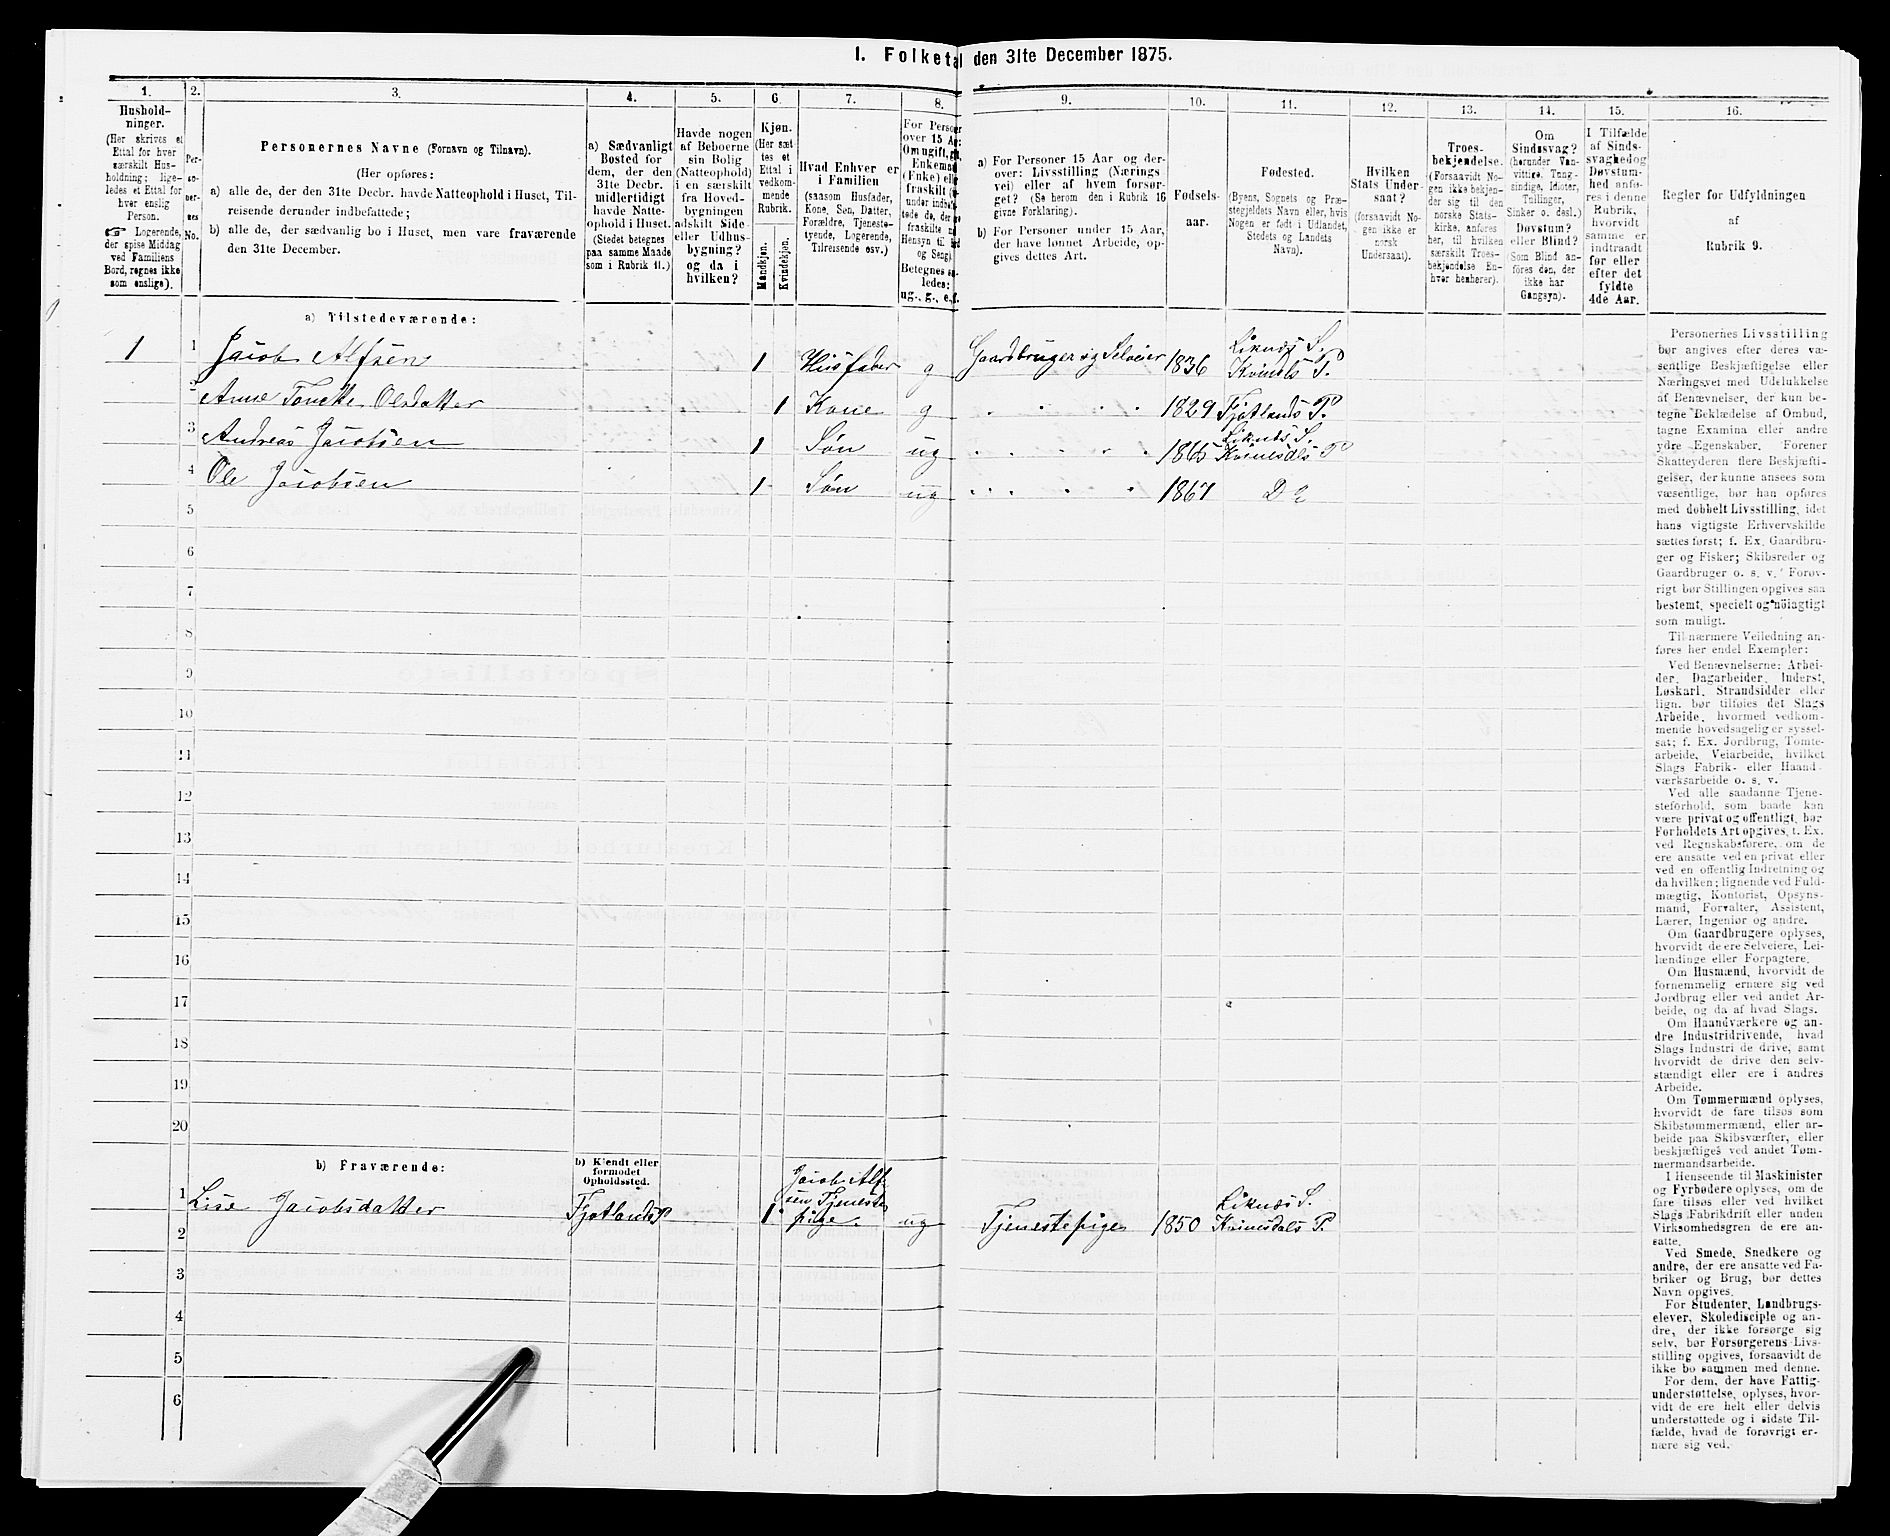 I. Folketal den 31te December 1875.
1.
Hushold-
ninger.
(Her skrives et
Ettal for hver
særskilt Hus-
holdning; lige-
ledes et Ettal for
hver enslig
Person.
☞ Logerende,
der spise Middag
ved Familiens
Bord, regnes ikke
som enslige).
2.
Per-
so-
ner-
nes
No.
3.
Personernes Navne (Fornavn og Tilnavn).
(Her opføres:
a) alle de, der den 31te Decbr. havde Natteophold i Huset, Til-
reisende derunder indbefattede;
b) alle de, der sædvanlig bo i Huset, men vare fraværende
den 31te December.
4.
a) Sædvanligt
Bosted for
dem, der den
31te Decbr.
midlertidigt
havde Natte-
ophold i Huset.
(Stedet betegnes
paa samme Maade
som i Rubrik 11.)
5.
Havde nogen
af Beboerne
sin Bolig
(Natteophold)
i en særskilt
fra Hoved-
bygningen
adskilt Side-
eller Udhus-
bygning?
og da i
hvilken?
6.
Kjøn.
(Her sæt-
tes et
Ettal i
vedkom-
mende
Rubrik.
Mandkjøn.
Kvindekjøn.
7.
Hvad Enhver er
i Familien
(saasom Husfader,
Kone, Søn, Datter,
Forældre, Tjeneste-
tyende, Logerende,
Tilreisende osv.)
8.
For Person
over 15 Aar:
Om ugift, gift,
Enkemand
(Enke) eller
fraskilt
Hensyn til
og Seng).
Betegnes saa-
ledes:
ug., g., e., f.
9.
a) For Personer 15 Aar og der-
over: Livsstilling (Nærings
vei) eller af hvem forsør-
get? (Se herom den i Rubrik 16
givne Forklaring).
b) For Personer under 15 Aar,
der have lønnet Arbeide, op-
gives dettes Art.
10.
Fødsels-
aar.
11.
Fødested.
(Byens, Sognets og Præ-
stegjeldets Navn eller, hvis
Nogen er født i Udlandet,
Stedets og Landets
Navn).
12.
Hvilken
Stats Under-
saat?
(forsaavidt No-
gen ikke er
norsk
Undersaat).
13.
Troes-
bekjendelse.
(Forsaavidt No-
gen ikke bekjen-
der sig til den
norske Stats-
kirke, anføres
her, til hvilken
særskilt Troes-
bekjendelse En-
hver henhører).
14.
Om
Sindssvag?
(herunder Van-
vittige, Tung-
sindige, Idioter,
Tullinger,
Sinker o. desl.)
Døvstum?
eller Blind?
(Som Blind an-
føres den, der
ikke har
Gangsyn).
15.
I Tilfælde
af Sinds-
svaghed og
Døvstum-
hed anfø-
res i denne
Rubrik,
hvorvidt
samme er
indtraadt
før eller
efter det
fyldte
4de Aar.
16.
Regler for Udfyldningen
af
Rubrik 9.
a) Tilstedeværende:
1 1 Jacob Alfsen 1 Husfader g Gaardbruger og Selveier 1836 Liknæs S. Kvineds P.
2 Anne Tonette Olsdatter 1 Kone g 1829 Fjotlands P.
3 Andreas Jacobsen 1 Søn ug 1865 Liknæs S. Kvinesdals P
4 Ole Jacobsen 1 Søn ug 1867 Do
5
6
7
8
9
10
11
12
13
14
15
16
17
18
19
20
b) Fraværende:
b) Kjendt eller
formodet
Opholdssted.
1 Lise Jacobsdatter Fjotlands P 1 Jacob Alfsen Tjenestepige ug Tjenestepige 1850 Liknæs S. Kvinesdals P.
2
3
4
5
6
Personernes Livsstilling
bør angives efter deres væ-
sentlige Beskjæftigelse eller
Næringsvei med Udelukkelse
af Benævnelser, der kun be-
tegne Beklædelse af Ombud,
tagne Examina eller andre
ydre Egenskaber. Forener
Skatteyderen flere Beskjæfti-
gelser, der kunne ansees som
væsentlige, bør han opføres
med dobbelt Livsstilling, idet
hans vigtigste Erhvervskilde
sættes først; f. Ex. Gaardbru-
ger og Fisker; Skibsreder og
Gaardbruger o. s. v. Forøv-
rigt bør Stillingen opgives saa
bestemt, specielt og nøiagtigt
som muligt.
Til nærmere Veiledning an-
føres her endel Exempler:
Ved Benævnelserne: Arbei-
der, Dagarbeider, Inderst,
Løskarl, Strandsidder eller
lign. bør tilføies det Slags
Arbeide, hvormed vedkom-
mende hovedsagelig er syssel-
sat; f. Ex. Jordbrug, Tomte-
arbeide, Veiarbeide, hvilket
Slags Fabrik- eller Haand-
værksarbeide o. s. v.
Ved alle saadanne Tjene-
steforhold, som baade kan
være privat og offentligt, bør
Forholdets Art opgives, t. Ex.
ved Regnskabsførere, om de
ere ansatte ved en privat eller
ved en offentlig Indretning og
da hvilken; lignende ved Fuld-
mægtig, Kontorist, Opsyns-
mand, Forvalter, Assistent,
Lærer, Ingeniør og andre.
Om Gaardbrugere oplyses,
hvorvidt de ere Selveiere, Lei-
lændinge eller Forpagtere.
Om Husmænd, hvorvidt de
fornemmelig ernære sig ved
Jordbrug eller ved andet Ar-
beide, og da af hvad Slags.
Om Haandværkere og an-
dre Industridrivende, hvad
Slags Industri de drive, samt
hvorvidt de drive den selv-
stændigt eller ere i andres
Arbeide.
Om Tømmermænd oplyses,
hvorvidt de fare tilsøs som
Skibstømmermænd, eller ar-
beide paa Skibsværfter, eller
beskjæftiges ved andet Tøm-
mermandsarbeide.
I Henseende til Maskinister
og Fyrbødere oplyses, om de
fare tilsøs eller ved hvilket
Slags Fabrikdrift eller anden
Virksomhedsgren de ere an-
satte.
Ved Smede, Snedkere og
andre, der ere ansatte ved Fa-
briker og Brug, bør dettes
Navn opgives.
For Studenter, Landbrugs-
elever, Skoledisciple og an-
dre, der ikke forsørge sig
selv, bør Forsørgerens Livs-
stilling opgives, forsaavidt de
ikke bo sammen med denne.
For dem, der have Fattig-
understøttelse, oplyses, hvor-
vidt de ere helt eller delvis
understøttede og i sidste Til-
fælde, hvad de forøvrigt er-
nære sig ved.